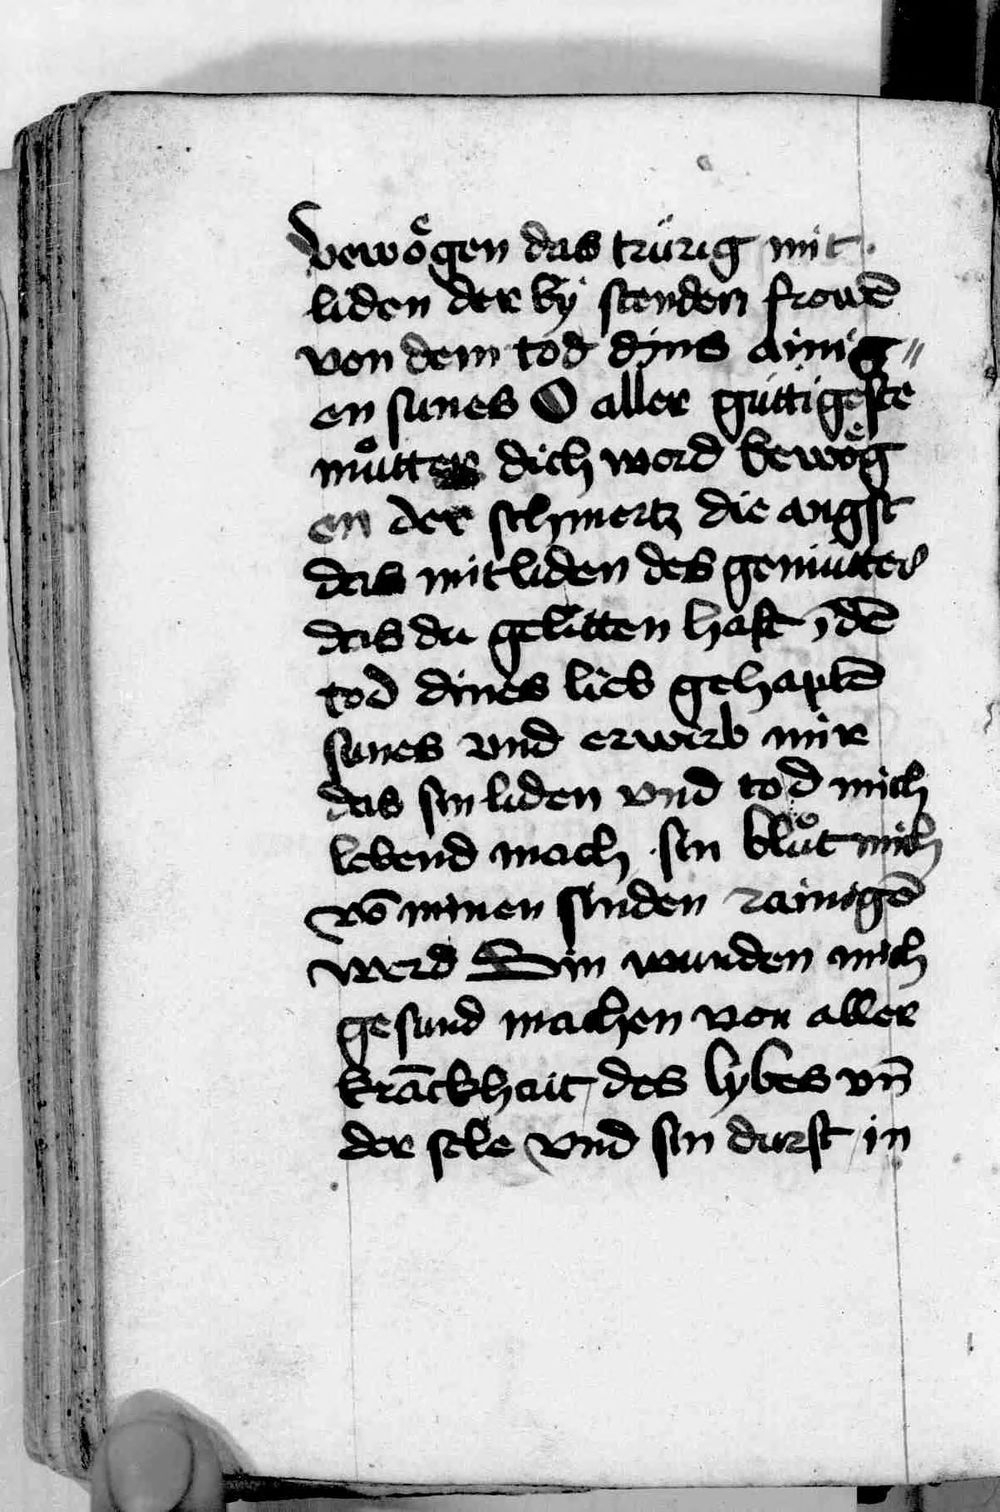 bewoͤgen das trürig mit
liden der by stenden frowē
von dem tod dins ainig〃
en sunes O aller güttigeste
muͦtter dich word bewoͤg
en der schmertz die angst
das mitliden des gemütter
das du gelitten hast jdē
tod dines lieb gehaptē
sunes vnd erwirb mir
das sin liden vnd tod mich
lebend mach sin bluͦt mich
vō minen sünden rainigē
werd Sin wunden mich
gesund machen von aller
krāckhait des lybes vn̄
der sele vnd sin durst in